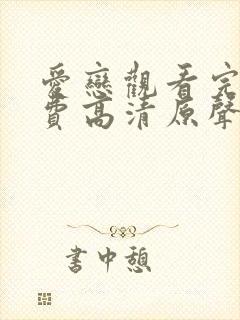 愛戀觀看完
費高清原聲
書中憩